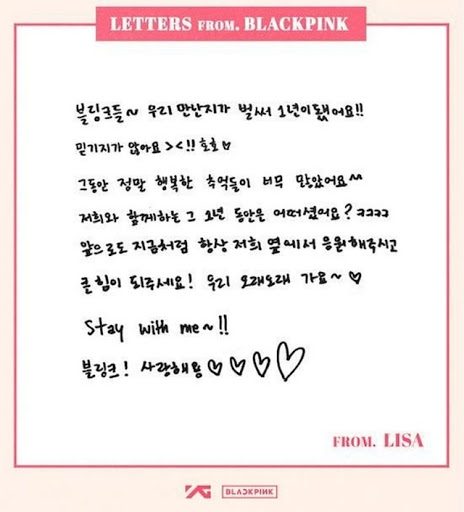 LETTERS FROM. BLACKPINK
블링크들~ 우리 만난지가 벌써 2년이됐어요!!
믿기지가 않아요><!! 호호♡
그동안 정말 행복한 추억들이 너무 많았어요^^
저희와 함께하는 그 2년 동안은 어떠셨어요? ㅋㅋㅋㅋ
앞으로도 지금처럼 항상 저희 옆에서 응원해주시고
큰힘이 되주세요! 우리 오래오래 가요~ ♡
Stay with me~!!
블링크! 사랑해용♡♡♡♡
FROM. LISA
YG BLACKPINK